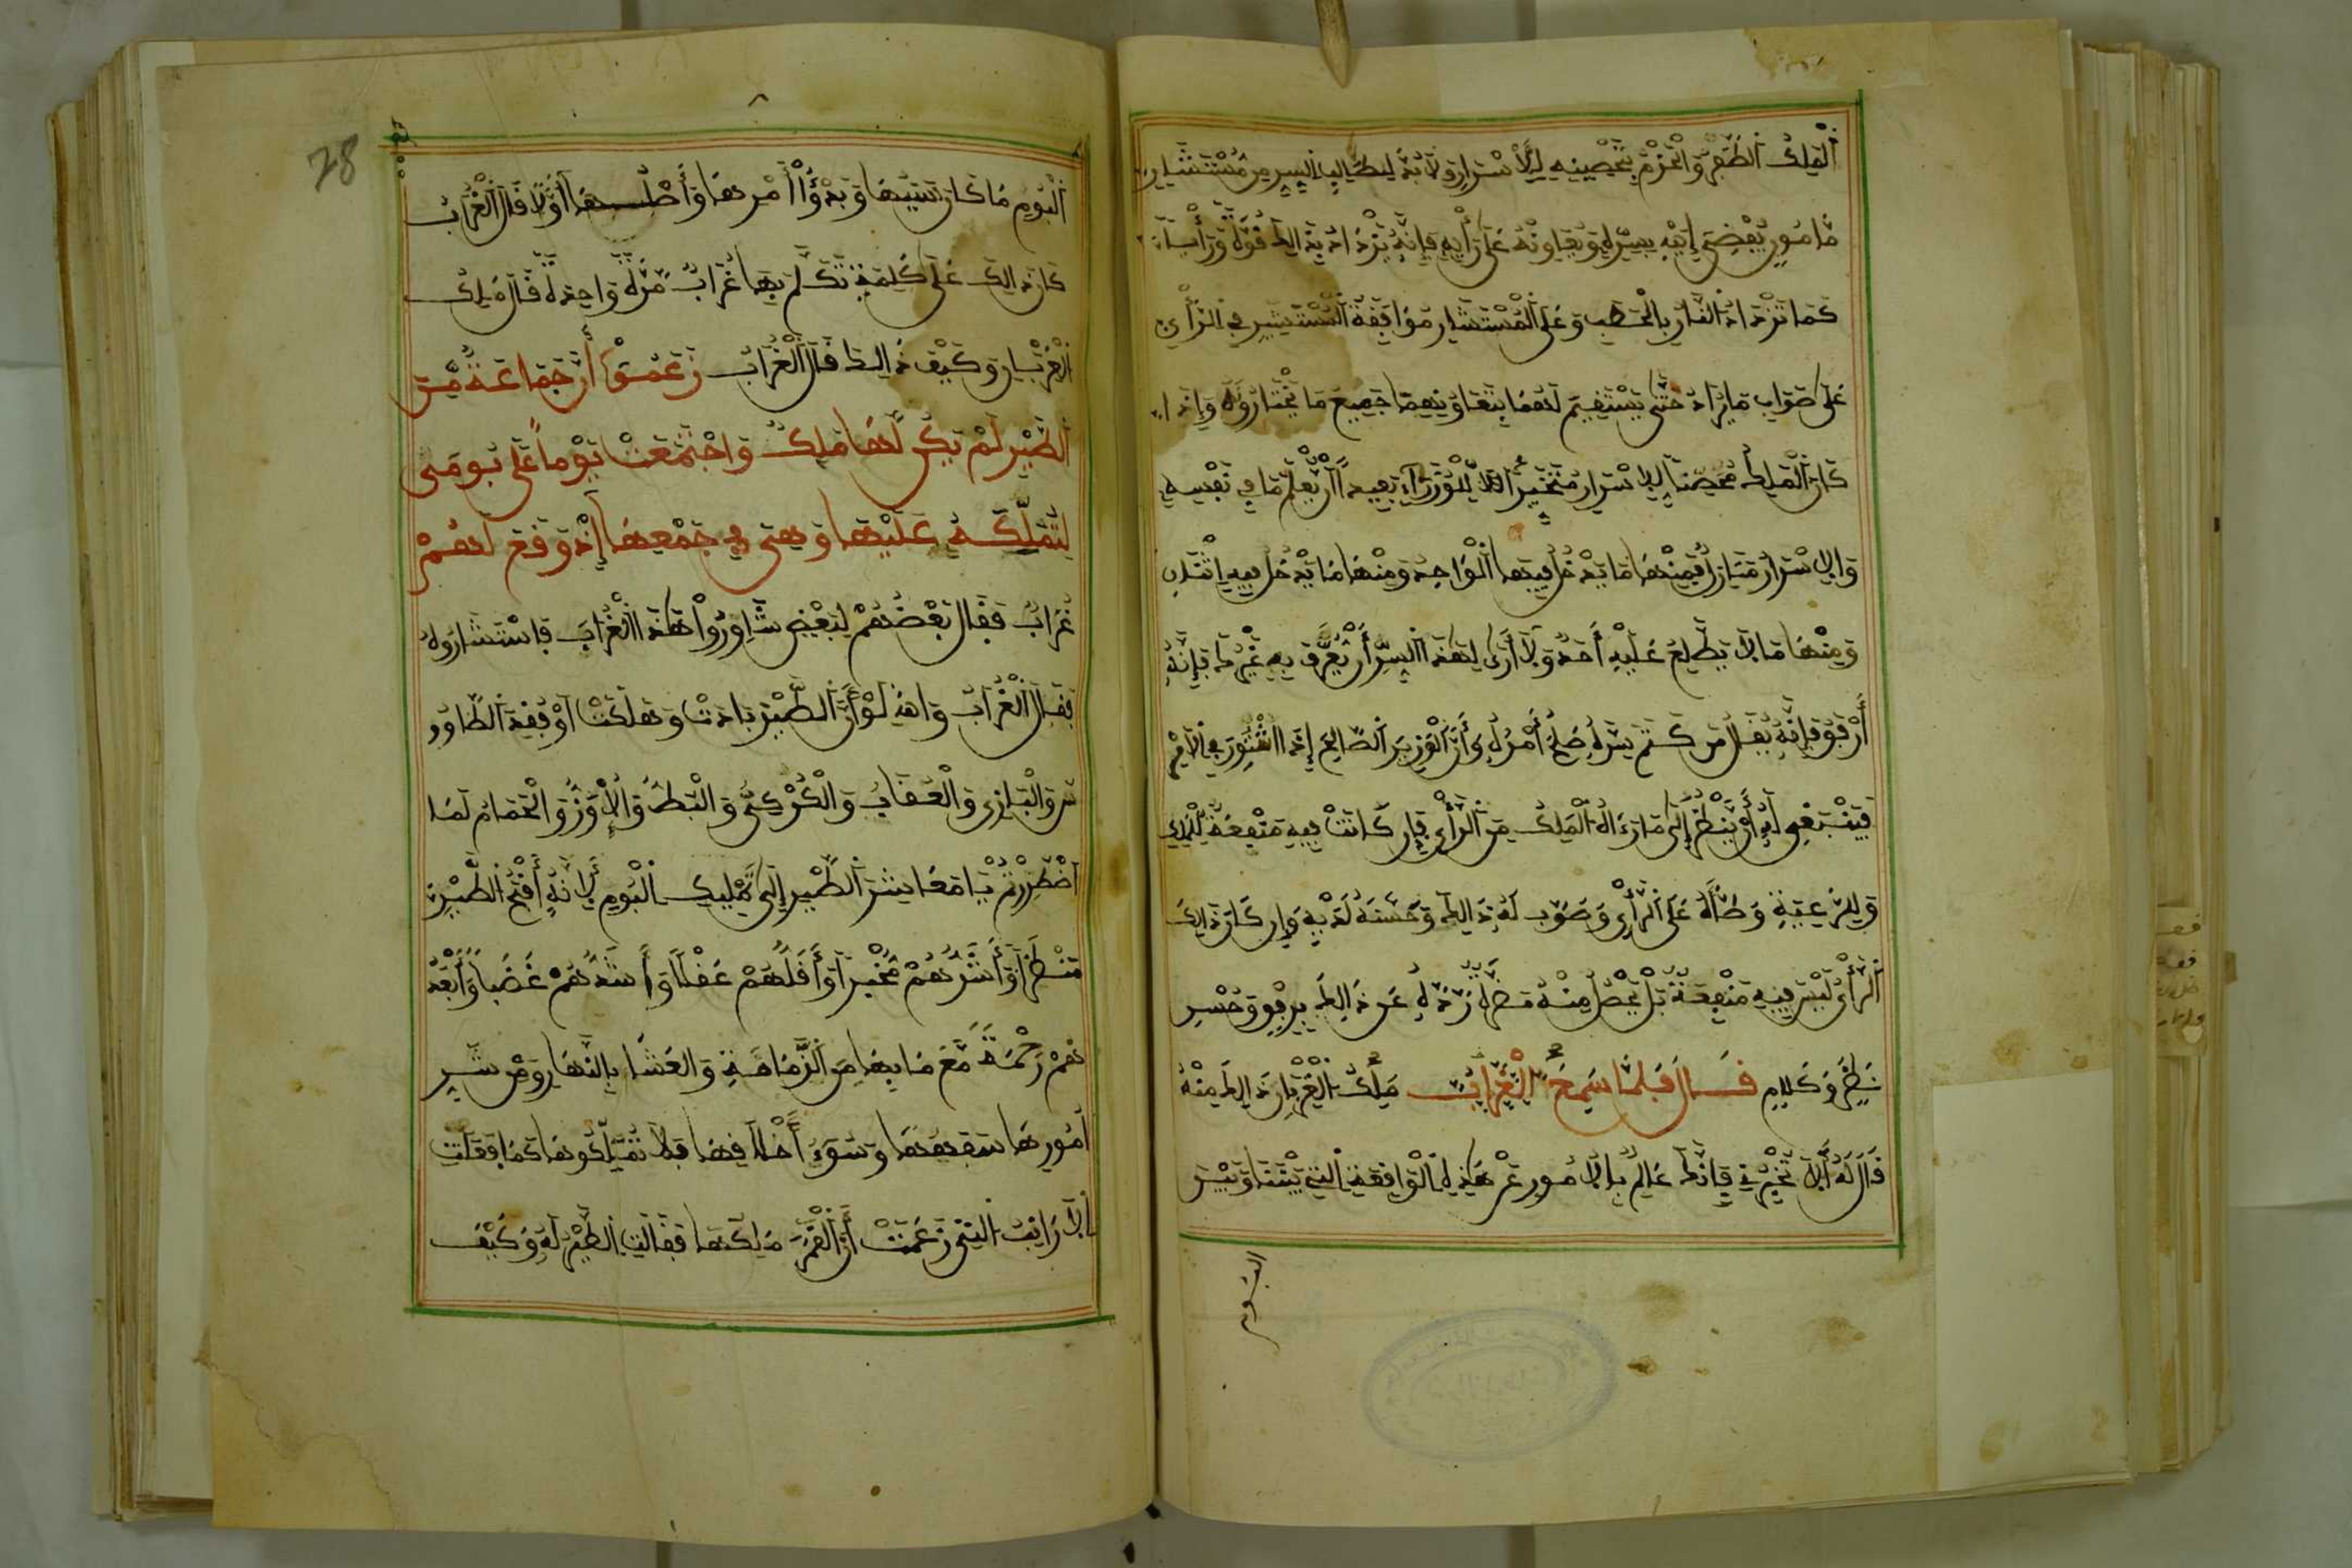 ٱلْمَلِكُ ٱلظَّفَرَ وَالْحَزْمَ بِتَحْصِينِهِ لِلْأَسْرَارِ وَلَا بُدَّ لِطَالِبِ السِّرِّ مِن مُسْتَشَارٍ
مَامُونٍ يُفْضِي إِلَيْهِ بِسِرِّهِ وَيُعَاوِنُهُ عَلَى رَأْيِهِ فَإِنَّهُ يَزْدَادُ بِذَالِكَ قُوَّةً وَرَأْياً
كَمَا تَزْدَادُ النَّارُ بِالْحَطَبِ وَعَلَى الْمُسْتَشَارِ مُوَافَقَةُ الْمُسْتَشِيرِ فِي الرَّأْيِ
عَلَى صَوَابِ مَا يَرَاهُ حَتَّى يَسْتَقِيمَ لَهُمَا بِتَعَاوُنِهِمَا جَمِيعَ مَا يَخْتَارُونَهُ وَإِذَا
كَانَ الْمَلِكُ مُحَصِّناً لِلْأَسْرَارِ مُتَخَيِّراً لِلْوُزَرَاءِ بَعِيداً أَنْ يُعْلَمَ مَا فِي نَفْسِهِ
وَالْأَسْرَارُ مَنَازِلُ فَمِنْهَا مَا يَدْخُلُ فِيهَا الْوَاحِدُ وَمِنْهَا مَا يَدْخُلُ فِيهِ اثْنَانِ
وَمِنْهَا مَا لَا يَطَّلِعُ عَلَيْهِ أَحَدٌ وَلَا أَرَى لِهَذَا السِّرِّ أَنْ يُعَرَّفَ بِهِ غَيْرُكَ فَإِنَّهُ
أَرْفَقُ فَإِنَّهُ يُقَالُ مَن كَتَمَ سِرَّهُ صَلُحَ أَمْرُهُ وَأَنَّ الْوَزِيرَ الصَّالِحَ إِذَا اسْتُشِيرَ فِي الْأَمْرِ
فَيَنْبَغِي لَهُ أَنْ يَنْظُرَ إِلَى مَا رَءَاهُ الْمَلِكُ مِنَ الرَّأْيِ فَإِن كَانَتْ فِيهِ مَنْفَعَةٌ لِلْمَلِكِ
وَلِلرَّعِيَّةِ وَطَّأَهُ عَلَى الرَّأْيِ وَصَوَّبَ لَهُ ذَالِكَ وَحَسَّنَهُ لَدَيْهِ وَإِن كَانَ ذَالِكَ
الرَّأْيُ لَيْسَ فِيهِ مَنْفَعَةٌ بَلْ يَحْصُلُ مِنْهُ مَضَرَّةٌ رَدَّهُ عَن ذَالِكَ بِرِفْقٍ وَحُسْنِ
نَظَرٍ وَكَلَامٍ قَالَ فَلَمَّا سَمِعَ الْغُرَابُ مَلِكُ الْغِرْبَانِ ذَالِكَ مِنْهُ
قَالَ لَهُ أَلَا تُخْبِرْنِي فَإِنَّكَ عَالِمٌ بِالْأُمُورِ عَنْ هَذِهِ الْوَاقِعَةِ الَّتِي بَيْنَنَا وَبَيْنَ
البوم
28
الْبُومِ مَا كَانَ سَبَبُهَا وَبَدْؤُ أَمْرِهَا وَأَصْلُهَا أَوَّلًا قَالَ الْغُرَابُ
كَانَ ذَالِكَ عَلَى كَلِمَةٍ تَكَلَّمَ بِهَا غُرَابٌ مَرَّةً وَاحِدَةً قَالَ مَلِكُ
الْغِرْبَانِ وَكَيْفَ ذَالِكَ قَالَ الْغُرَابُ زَعَمُوا أَنَّ جَمَاعَةً مِّنَ
الطَّيْرِ لَمْ يَكُن لَّهَا مَلِكٌ وَاجْتَمَعَتْ يَوْماً عَلَى بُومَى
لِتُمَلِّكَهُ عَلَيْهَا وَهِيَ فِي جَمْعِهَا إِذْ وَقَعَ لَهُمْ
غُرَابٌ فَقَالَ بَعْضُهُمْ لِبَعْضٍ شَاوِرُوا هَذَا الْغُرَابَ فَاسْتَشَارُوهُ
فَقَالَ الْغُرَابُ وَاللهِ لَوْ أَنَّ الطَّيْرَ بَادَتْ وَهَلَكَتْ أَوْ فُقِدَ الطَّاوُو
سُ وَالْبَازِي وَالْعُقَابُ وَالْكُرْكِيُّ وَالْبَطُّ وَالْإِوَزُّ وَالْحَمَامُ لَمَا
اضْطُرِرْتُمْ يَا مَعَاشِرَ الطَّيْرِ إِلَى تَمْلِيكِ الْبُومِ لِأَنَّهُ أَقْبَحُ الطَّيْرِ
مَنْظَراً وَأَشَرُّهُمْ مَخْبَراً وَأَقَلُّهُمْ عَقْلًا وَأَشَدُّهُمْ غَضَباً وَأَبْعَدُ
هُمْ رَحْمَةً مَعَ مَا بِهَا مِنَ الزَّمَانَةِ وَالْعَشَا بِالنَّهَارِ وَمِن شَرِّ
أُمُورِهَا سَفَهُهَا وَسُوءُ أَخْلَاقِهَا فَلَا تُمَلِّكُوهَا كَمَا فَعَلَتِ
الْأَرَانِبُ الَّتِي زَعَمَتْ أَنَّ الْقَمَرَ مَلِكُهَا فَقَالَتِ الطَّيْرُ لَهُ وَكَيْفَ